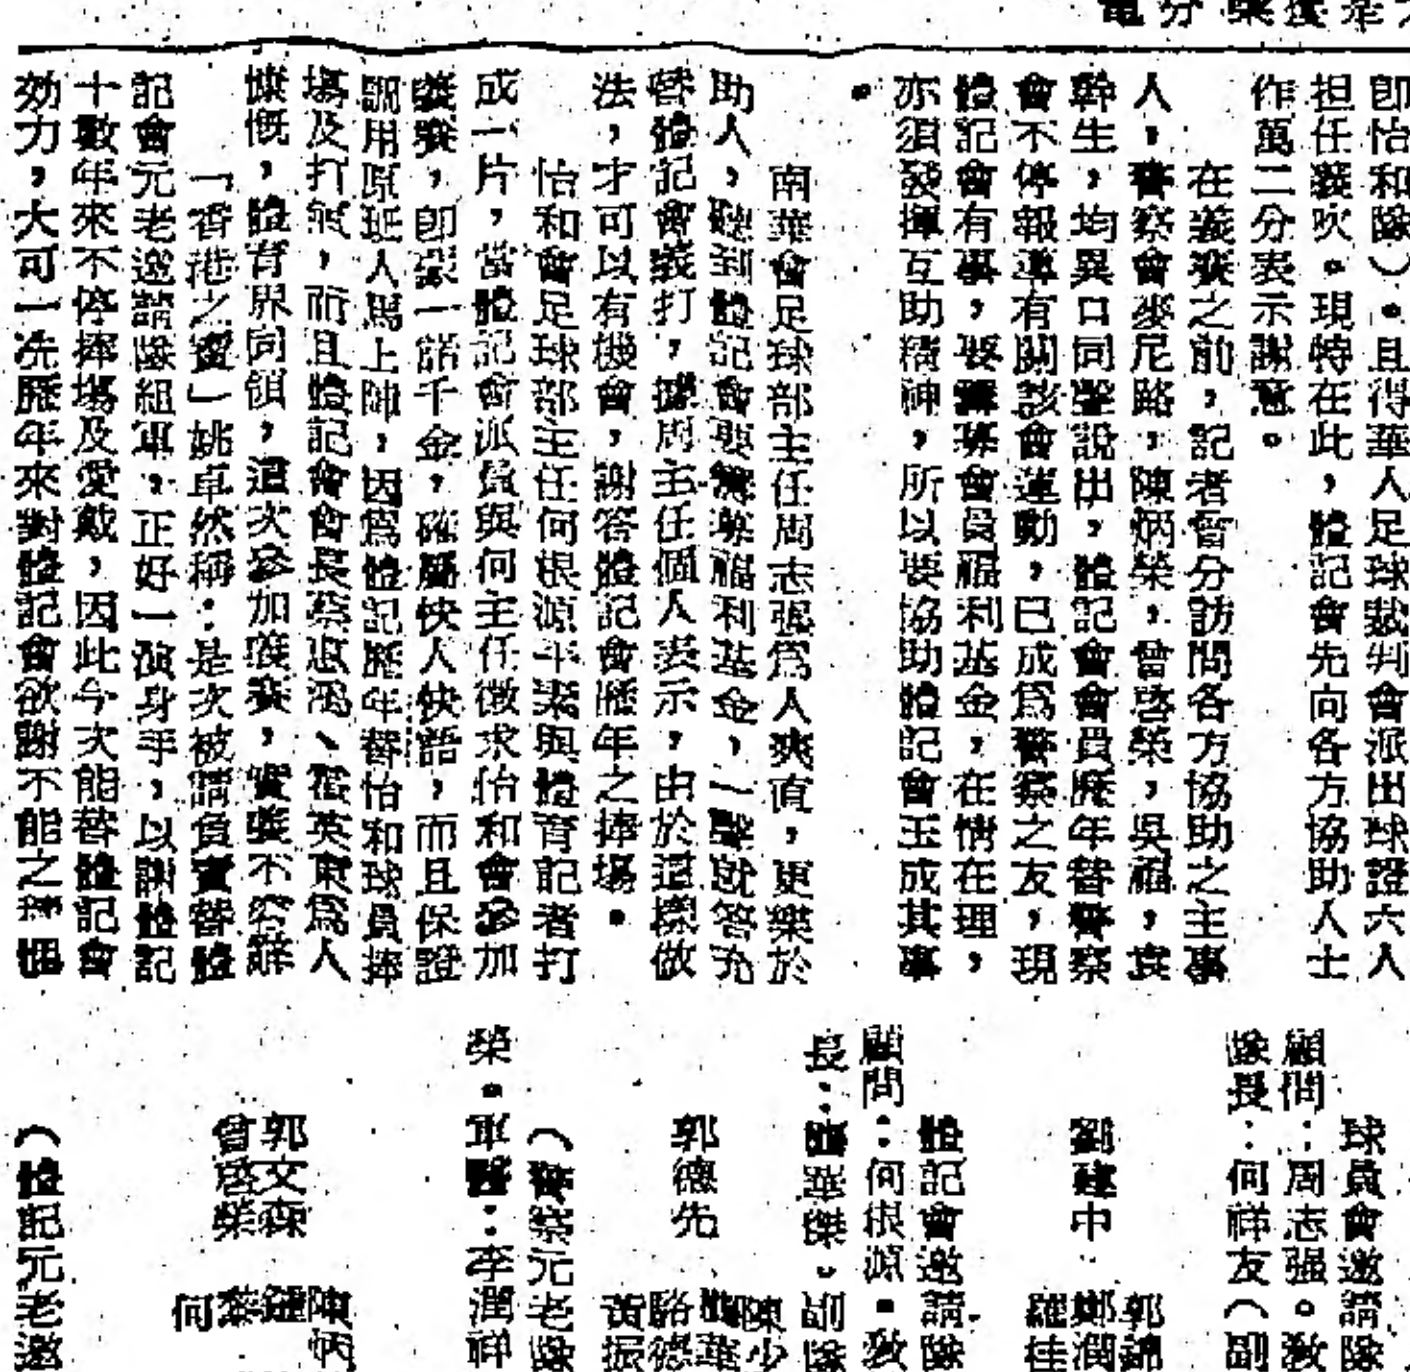 即怡和隊）。且得華人足球裁判會派出球證六人
担任義吹。現特在此，體記會先向各方協助人士
作萬二分表示謝意。
在義賽之前，記者曾分訪問各方協助之主事
人，警察會麥尼路，陳炳榮，曾啓榮，吳福，袁
幹生，均異口同聲說出，體記會會員歷年替警察
會不停報導有關該會運動，已成爲警察之友，現
體記會有事，要籌募會員福利基金，在情在理，
亦須發揮互助精神，所以要協助體記會玉成其事
。
南華會足球部主任周志强爲人爽直，更樂於
助人，聽到體記會要籌募福利基金，一聲就答允
替體記會義打，據周主任個人表示，由於這樣做
法，才可以有機會，謝答體記會歷年之捧場。
怡和會足球部主任何根源平素與體育記者打
成一片，當體記會派員與何主任徵求怡和會參加
義賽，即獲一諾千金，確屬快人快語，而且保證
調用原班人馬上陣，因爲體記歷年替怡和球員捧
塲及打氣，而且體記會會長蔡惠鴻、霍英東爲人
慷慨，體育界同領，這次參加義賽，實義不容辭
「香港之寶」姚卓然稱：是次被請負責替體
記會元老邀請隊組軍，正好一演身手，以謝體記
十數年來不停捧塲及愛戴，因此今次能替體記會
効力，大可一洗歷年來對體記會欲謝不能之
球員會邀請隊
顧問：周志强。教
隊長：何祥友（副
郭錦
劉建中 鄭潤
羅桂
體記會邀請隊
顧問：何根源。教
長：華傑。副隊
陳少
郭德先 駱德
黃振
（警察元老隊
榮。軍醫：李潤祥
陳炳
郭文森
曾啓榮 黎
何
（體記元老邀